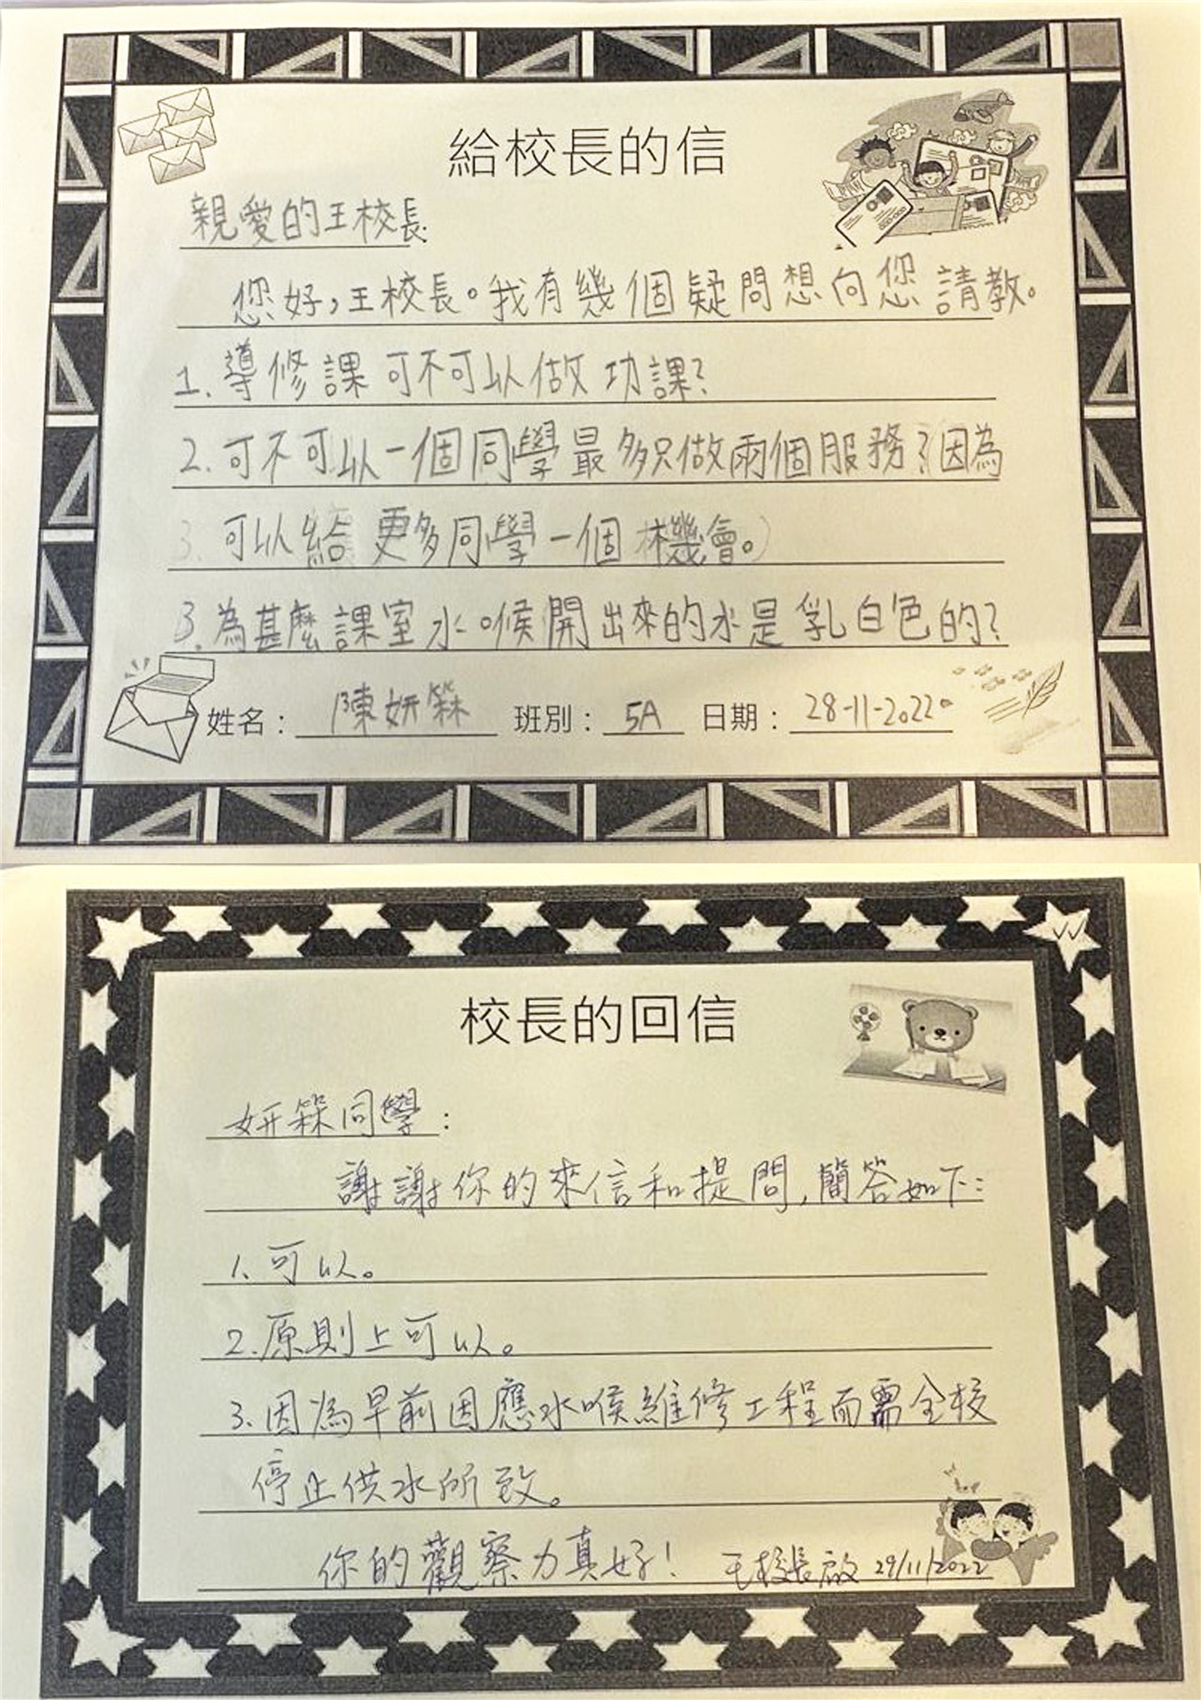 給校長的信
親愛的王校長
您好,王校長。我有幾個疑問想向您請教。
1.導修課可不可以做功課?
2.可不可以一個同學最多只做兩個服務?(因為
可以給更多同學一個機會。)
3.為甚麼課室水喉開出來的水是乳白色的?
姓名：陳妍槑 班別：5A 日期：28-11-2022。
校長的回信
妍槑同學：
謝謝你的來信和提問,簡答如下：
1.可以。
2.原則上可以。
3.因為早前因應水喉維修工程而需全校
停止供水所致。
你的觀察力真好! 王校長啟 29/11/2022